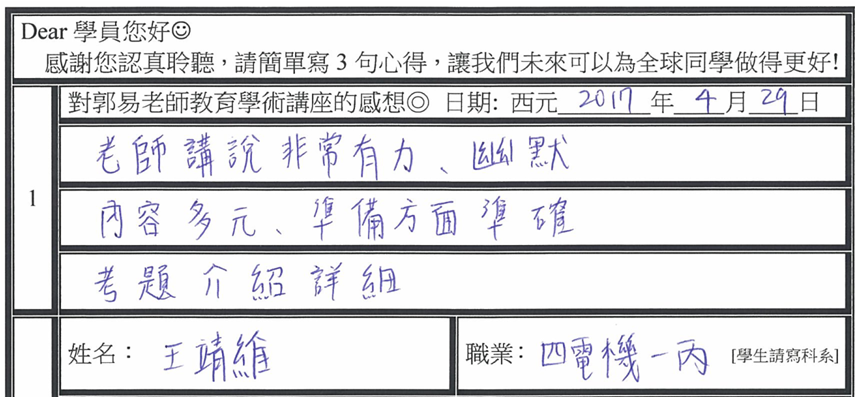 Dear 學員您好☺
感謝您認真聆聽，請簡單寫 3 句心得，讓我們未來可以為全球同學做得更好!
對郭易老師教育學術講座的感想◎ 日期: 西元 2017 年 4 月 29 日
1
老師講說非常有力、幽默
內容多元、準備方面準確
考題介紹詳細
姓名： 王靖維
職業： 四電機一丙 [學生請寫科系]